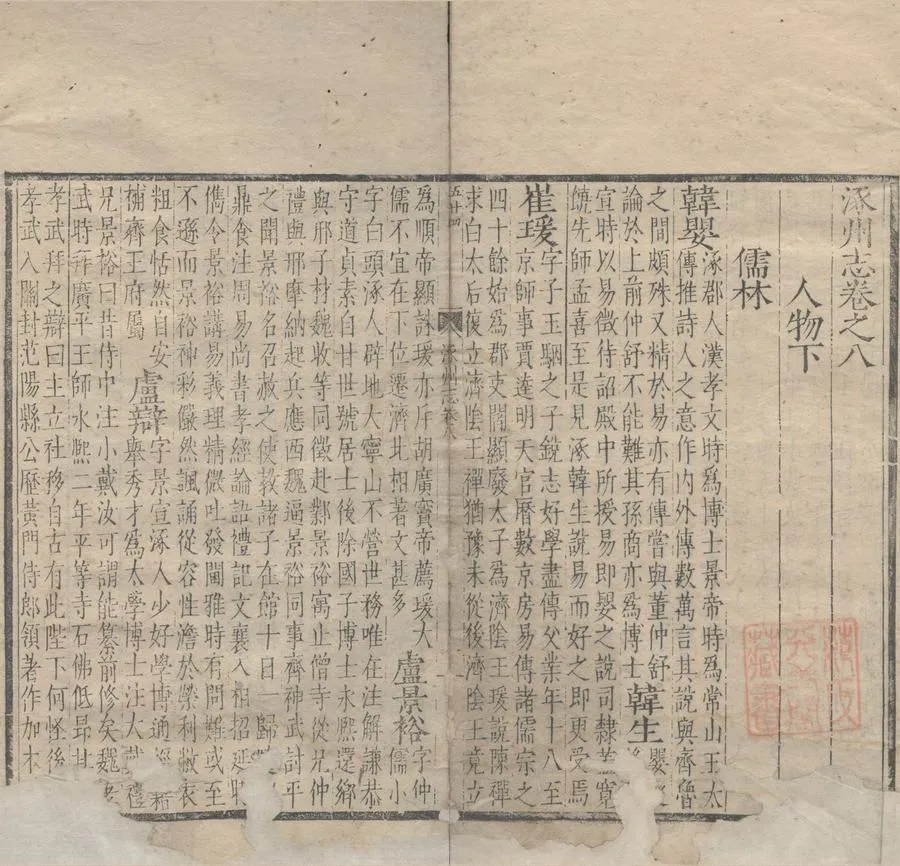 涿州志卷之八
人物下
儒林
韓嬰涿郡人漢孝文時爲博士景帝時爲常山王太
傳推詩人之意作內外傳數萬言其說與齊魯
之間頗殊又精於易亦有傳嘗與董仲舒
論於上前仲舒不能難其孫商亦爲博士韓生嬰
宣時以易徵待詔殿中所授易即嬰之說司隸蓋寬
饒先師孟喜至是見涿韓生說易而好之即更受焉
崔瑗字子玉駰之子銳志好學盡傳父業年十八至
京師事賈逵明天官曆數京房易傳諸儒宗之
四十餘始爲郡吏閻顯廢太子爲濟陰王瑗說陳禪
求白太后復立濟陰王禪猶豫未從後濟陰王竟立
五十四
涿州志卷八
爲順帝顯誅瑗亦斥胡廣竇帝薦瑗大
儒不宜在下位遷濟北相著文甚多盧景裕字仲
字白頭涿人辟地大寧山不營世務唯在注解謙恭
守道貞素自甘世號居士後除國子博士永熙還鄉
與邢子材魏收等同徵赴鄴景裕寓止僧寺從兄仲
禮與邢摩納起兵應西魏逼景裕同事齊神武討平
之聞景裕名召赦之使教諸子在館十日一歸
鼎食注周易尚書孝經論語禮記文襄入相招延時
儁令景裕講易義理精微吐發閑雅時有問難或至
不遜而景裕神彩儼然諷誦從容性澹於榮利敝衣
粗食恬然自安盧辯字景宣涿人少好學博通經
補齊王府屬舉秀才爲太學博士注大戴禮
兄景裕曰昔侍中注小戴汝可謂能纂前修矣魏
武時拜廣平王師永熙二年平等寺石佛低昂
孝武拜之辯曰主立社移自古有此陛下何怪後
孝武入關封范陽縣公歷黃門侍郎領著作加本